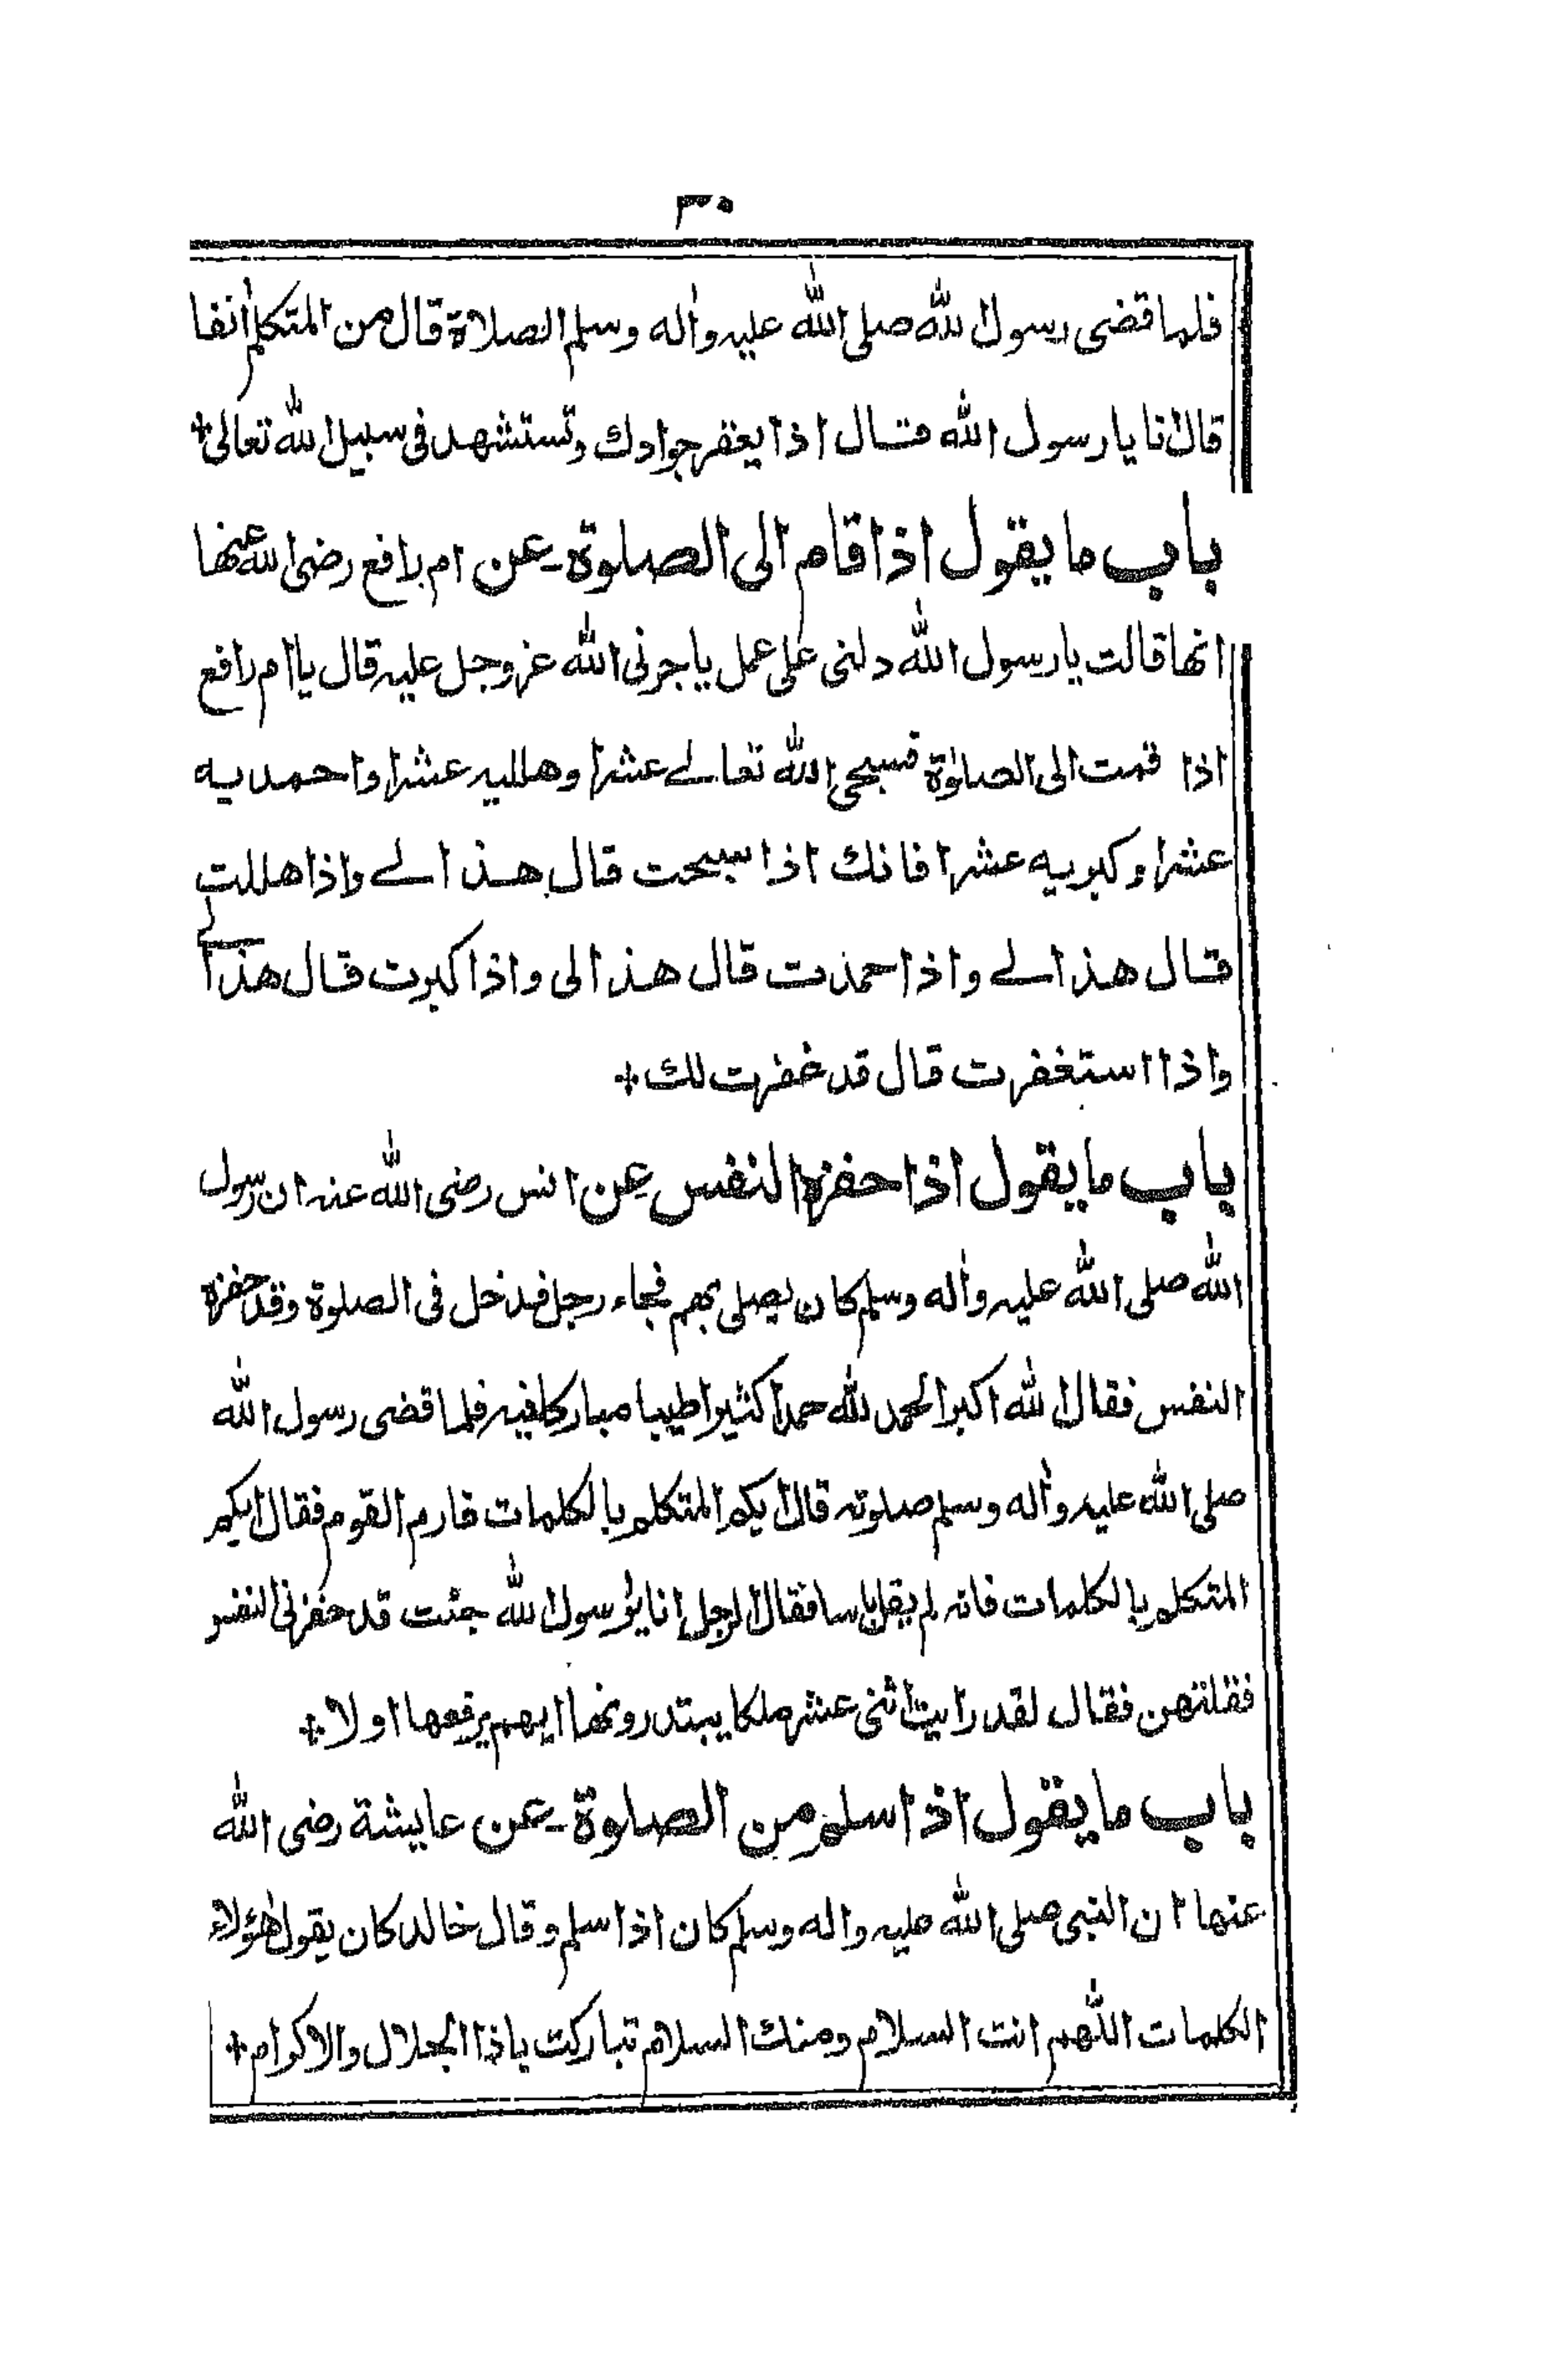 ٣٠
فلما قضى رسول الله صلى الله عليه واٰله وسلم الصلاة قال من المتكلم اٰنفا
قال انا يا رسول الله قال اذا يعقر جوادك وتستشهد فى سبيل الله تعالى +
باب ما يقول اذا قام الى الصلوة - عن ام رافع رضى الله عنها
انها قالت يا رسول الله دلنى على عمل ياجرنى الله عز وجل عليه قال يا ام رافع
اذا قمت الى الصلوٰة فسبحى الله تعالے عشرا وهلليه عشرا واحمديه
عشرا وكبريه عشرا فانك اذا سبحت قال هذا لے واذا هللت
قال هذا لے واذا حمدت قال هذا لى واذا كبرت قال هذا لے
واذا استغفرت قال قد غفرت لك +
باب ما يقول اذا حفزه النفس عن انس رضى الله عنه ان رسول
الله صلى الله عليه واٰله وسلم كان يصلى بهم فجاء رجل فدخل فى الصلوة وقد حفزه
النفس فقال الله اكبر الحمد لله حمدا كثيرا طيبا مباركا فيه فلما قضى رسول الله
صلى الله عليه واٰله وسلم صلوته قال ايكم المتكلم بالكلمات فارم القوم فقال ايكم
المتكلم بالكلمات فانه لم يقل باسا فقال الرجل انا يا رسول الله جئت قد حفزنى النفس
فقلتهن فقال لقد رايت اثنى عشر ملكا يبتدرونها ايهم يرفعها اولا +
باب ما يقول اذا سلم من الصلوة - عن عايشة رضى الله
عنها ان النبى صلى الله عليه واله وسلم كان اذا سلم وقال خالد كان يقول هٰؤلاء
الكلمات اللٰهم انت السلام ومنك السلام تباركت ياذا الجلال والاكرام +